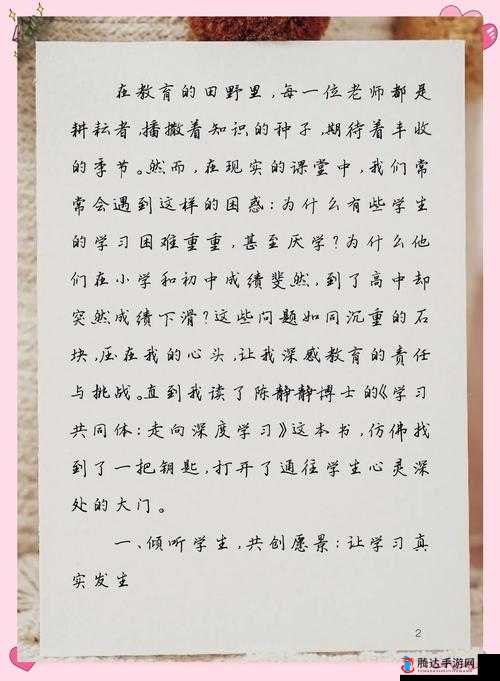 在教育的田野里，每一位老师都是
耕耘者，播撒着知识的种子，期待着丰收
的季节。然而，在现实的课堂中，我们常
常会遇到这样的困惑：为什么有些学生
的学习困难重重，甚至厌学？为什么他
们在小学和初中成绩斐然，到了高中却
突然成绩下滑？这些问题如同沉重的石
块，压在我的心头，让我深感教育的责任
与挑战。直到我读了陈静静博士的《学习
共同体：走向深度学习》这本书，仿佛找
到了一把钥匙，打开了通往学生心灵深
处的大门。
一、倾听学生，共创愿景：让学习真
实发生
2
腾达手游网